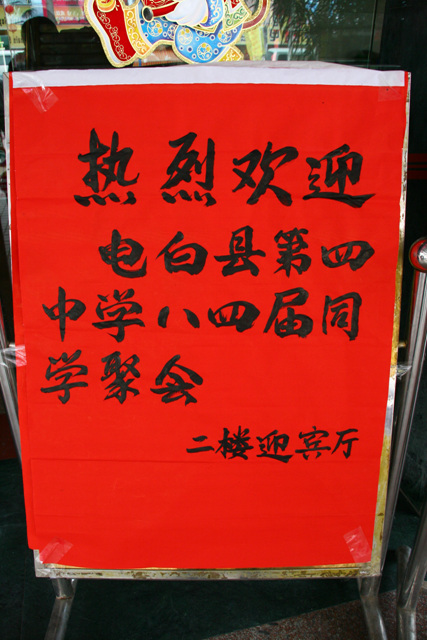 热烈欢迎
电白县第四
中学八四届同
学聚会
二楼迎宾厅